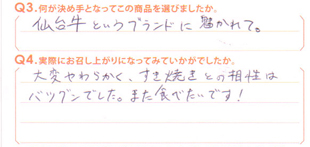 Q3.何が決め手となってこの商品を選びましたか。
仙台牛というブランドに魅かれて。
Q4.実際にお召し上がりになってみていかがでしたか。
大変やわらかく、すき焼きとの相性は
バツグンでした。また食べたいです!